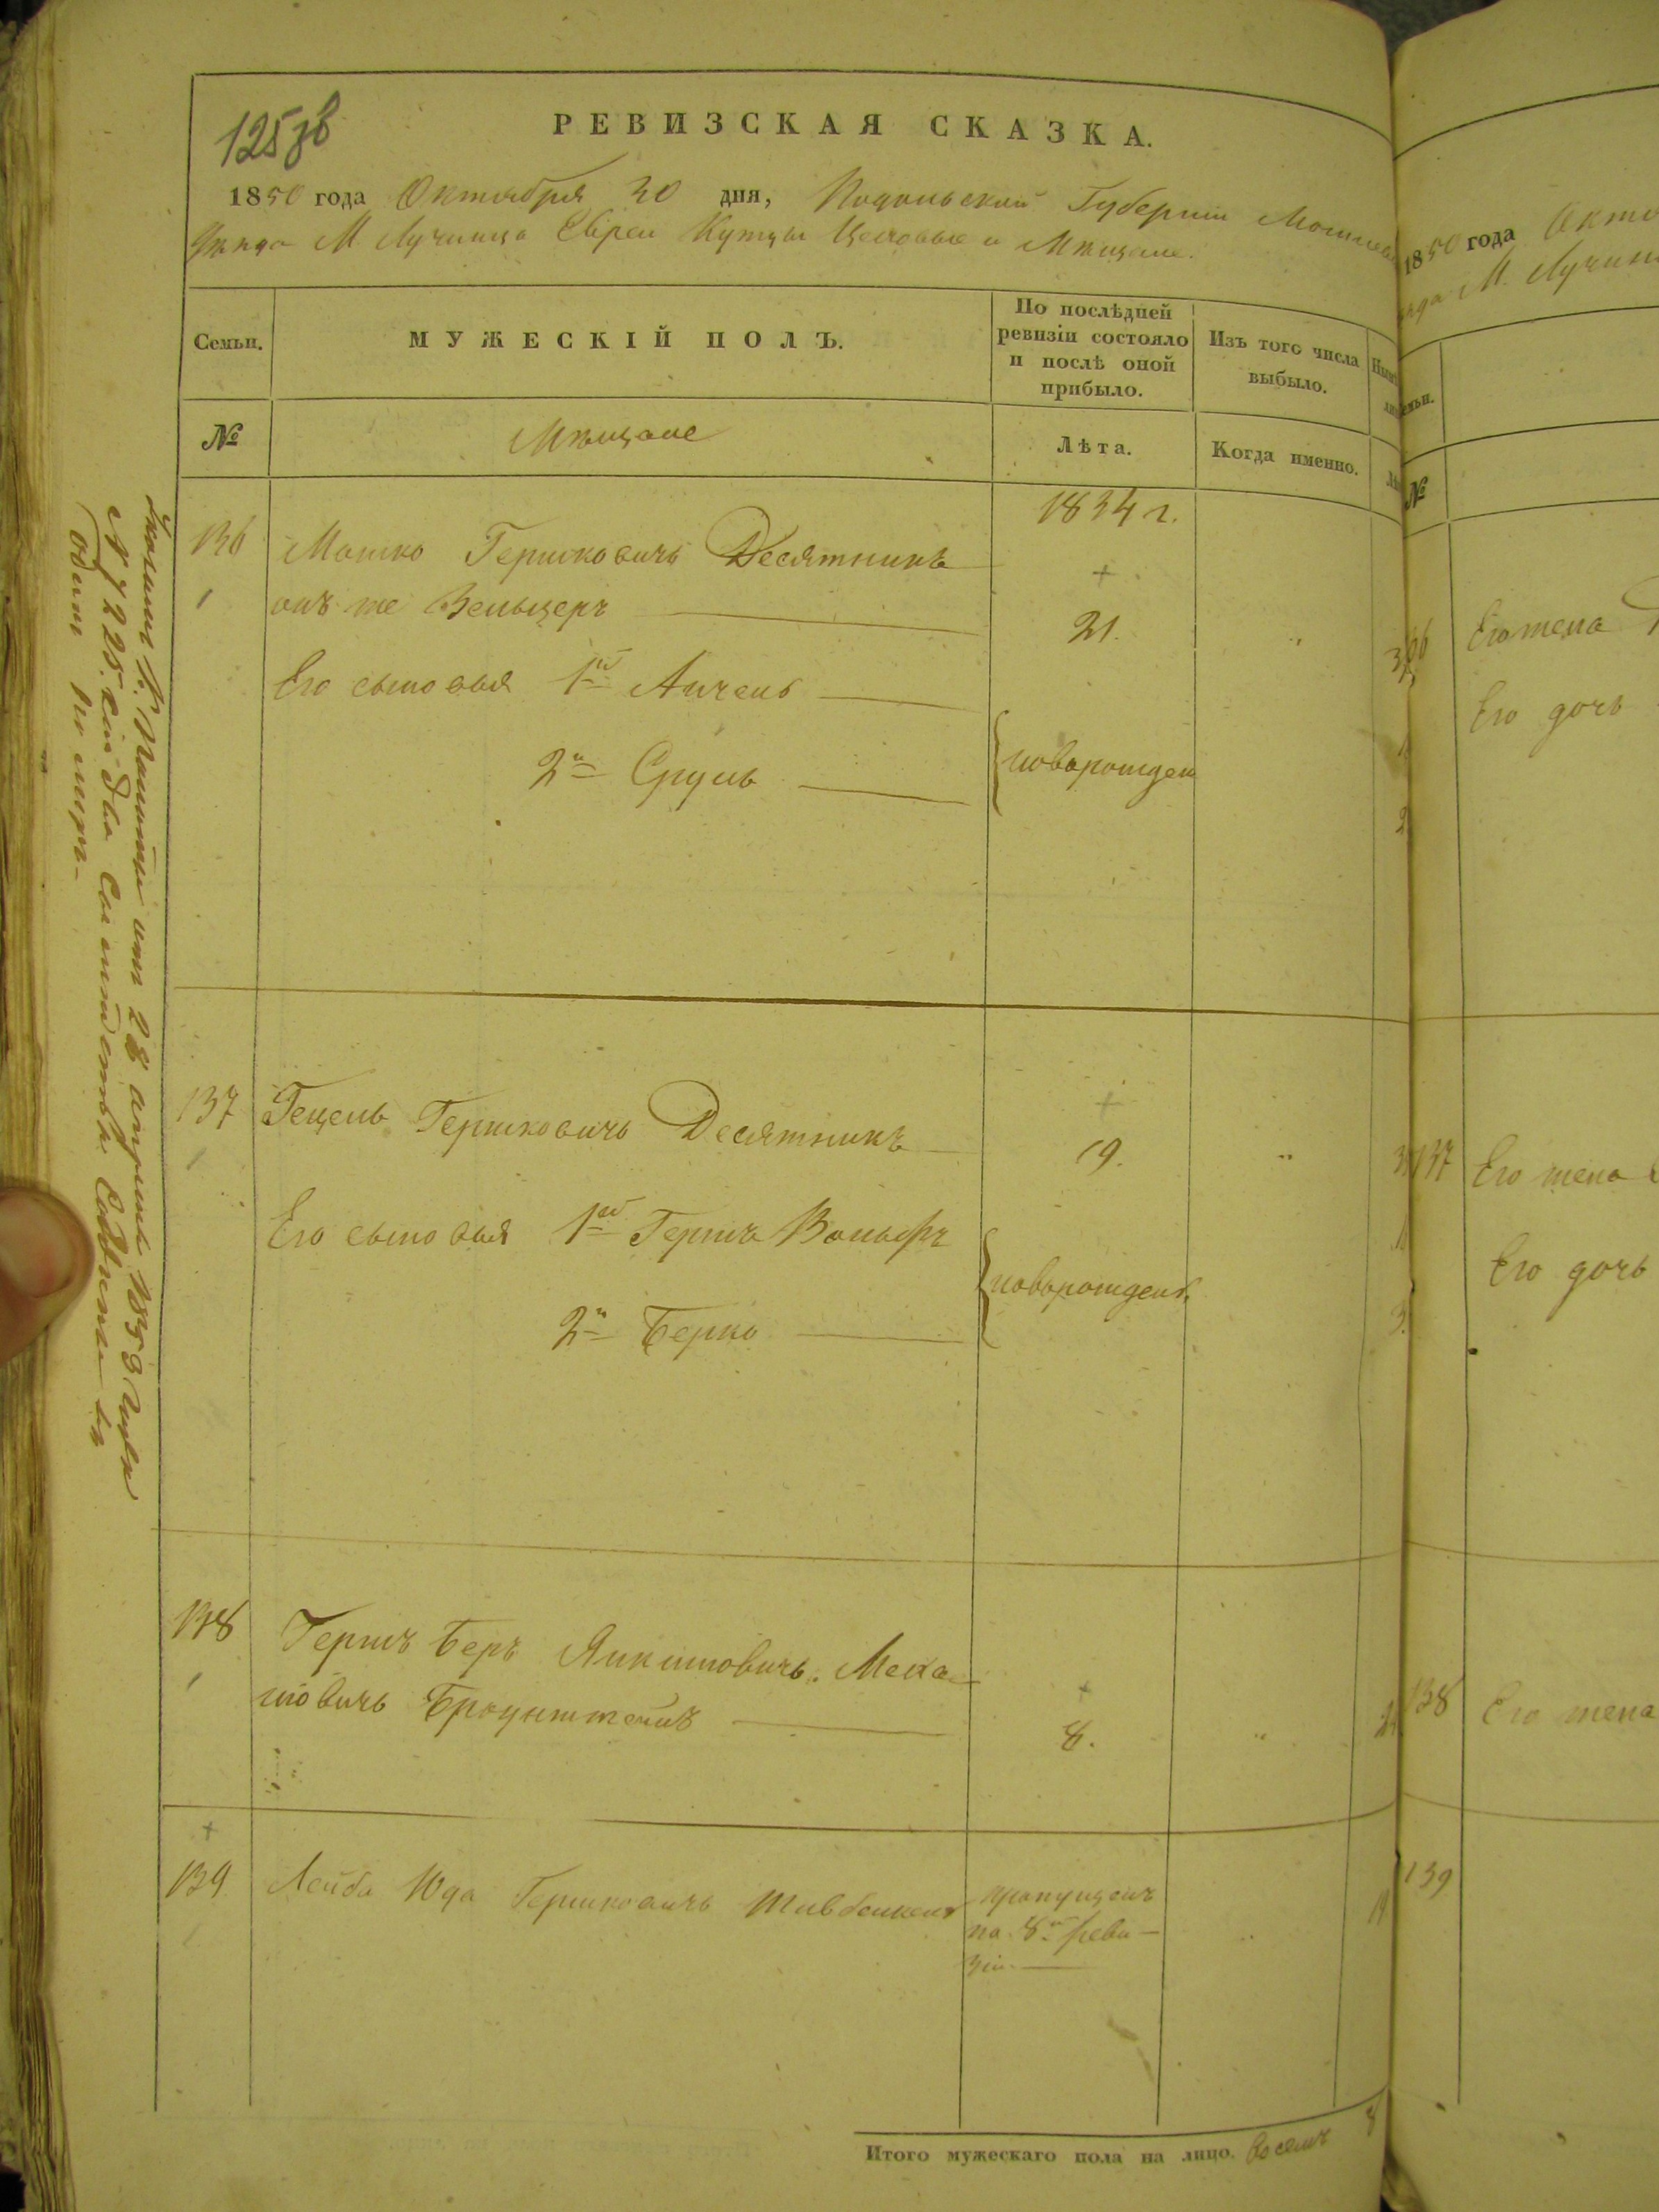 125зв
РЕВИЗСКАЯ СКАЗКА.
1850 года Октября 30 дня, Подольской Губернии
Уезда М Лучинца Евреи Купцы Цеховые и Мѣщане.
Семьи.
МУЖЕСКІЙ ПОЛЪ.
По послѣдней
ревизіи состояло
и послѣ оной
прибыло.
Изъ того числа
выбыло.
№
Мѣщане
Лѣта.
Когда именно.
1834 г.
136
Мошко Гершковичъ Десятникъ
онъ же Зельцеръ
21.
Его сыновья 1й Анчель
2й Сруль
новорожден
137
Гецель Гершковичъ Десятникъ
19.
Его сыновья 1й Гершъ Вольфъ
2й Берко
новорожден.
138
Гершъ Беръ Янкиловичъ
Броунштейнъ
8.
139
Лейба Юда Гершковичъ
пропущенъ
по 8й реви-
зіи.
Итого мужескаго пола на лицо. Восемъ 8
1850 года
М. Лучин
№
Его жена
Его дочь
137
Его жена
Его дочь
138
Его жена
139